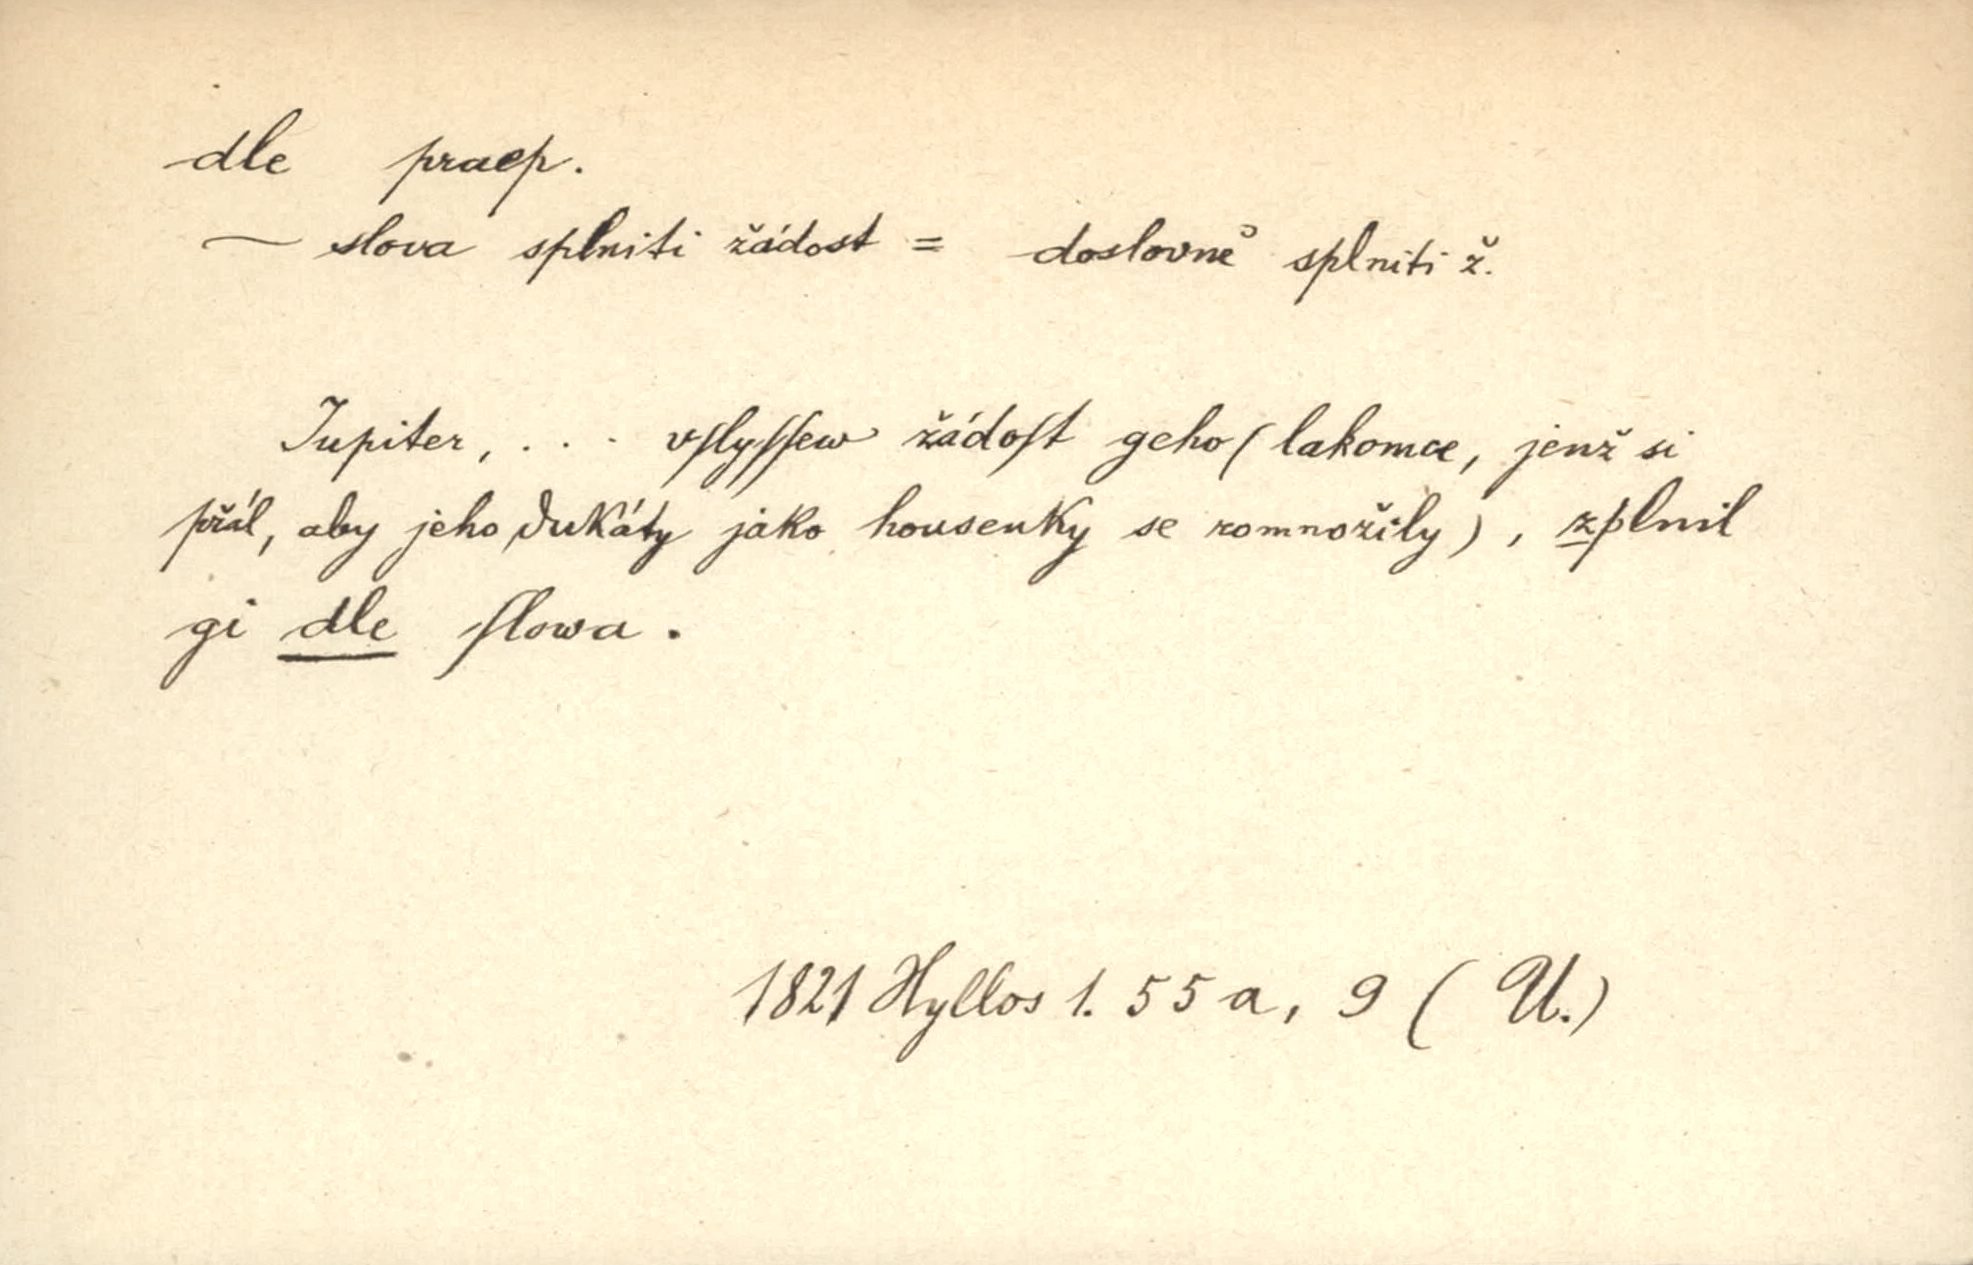 dle praep.
— slova splniti žádost = doslovně splniti ž.
Jupiter, . . . vſlyſſew žádoſt geho (lakomce, jenž si
přál, aby jeho dukáty jako housenky se romnožily), zplnil
gi dle ſlowa.
1821 Hyllos 1. 55a, 9 (U.)